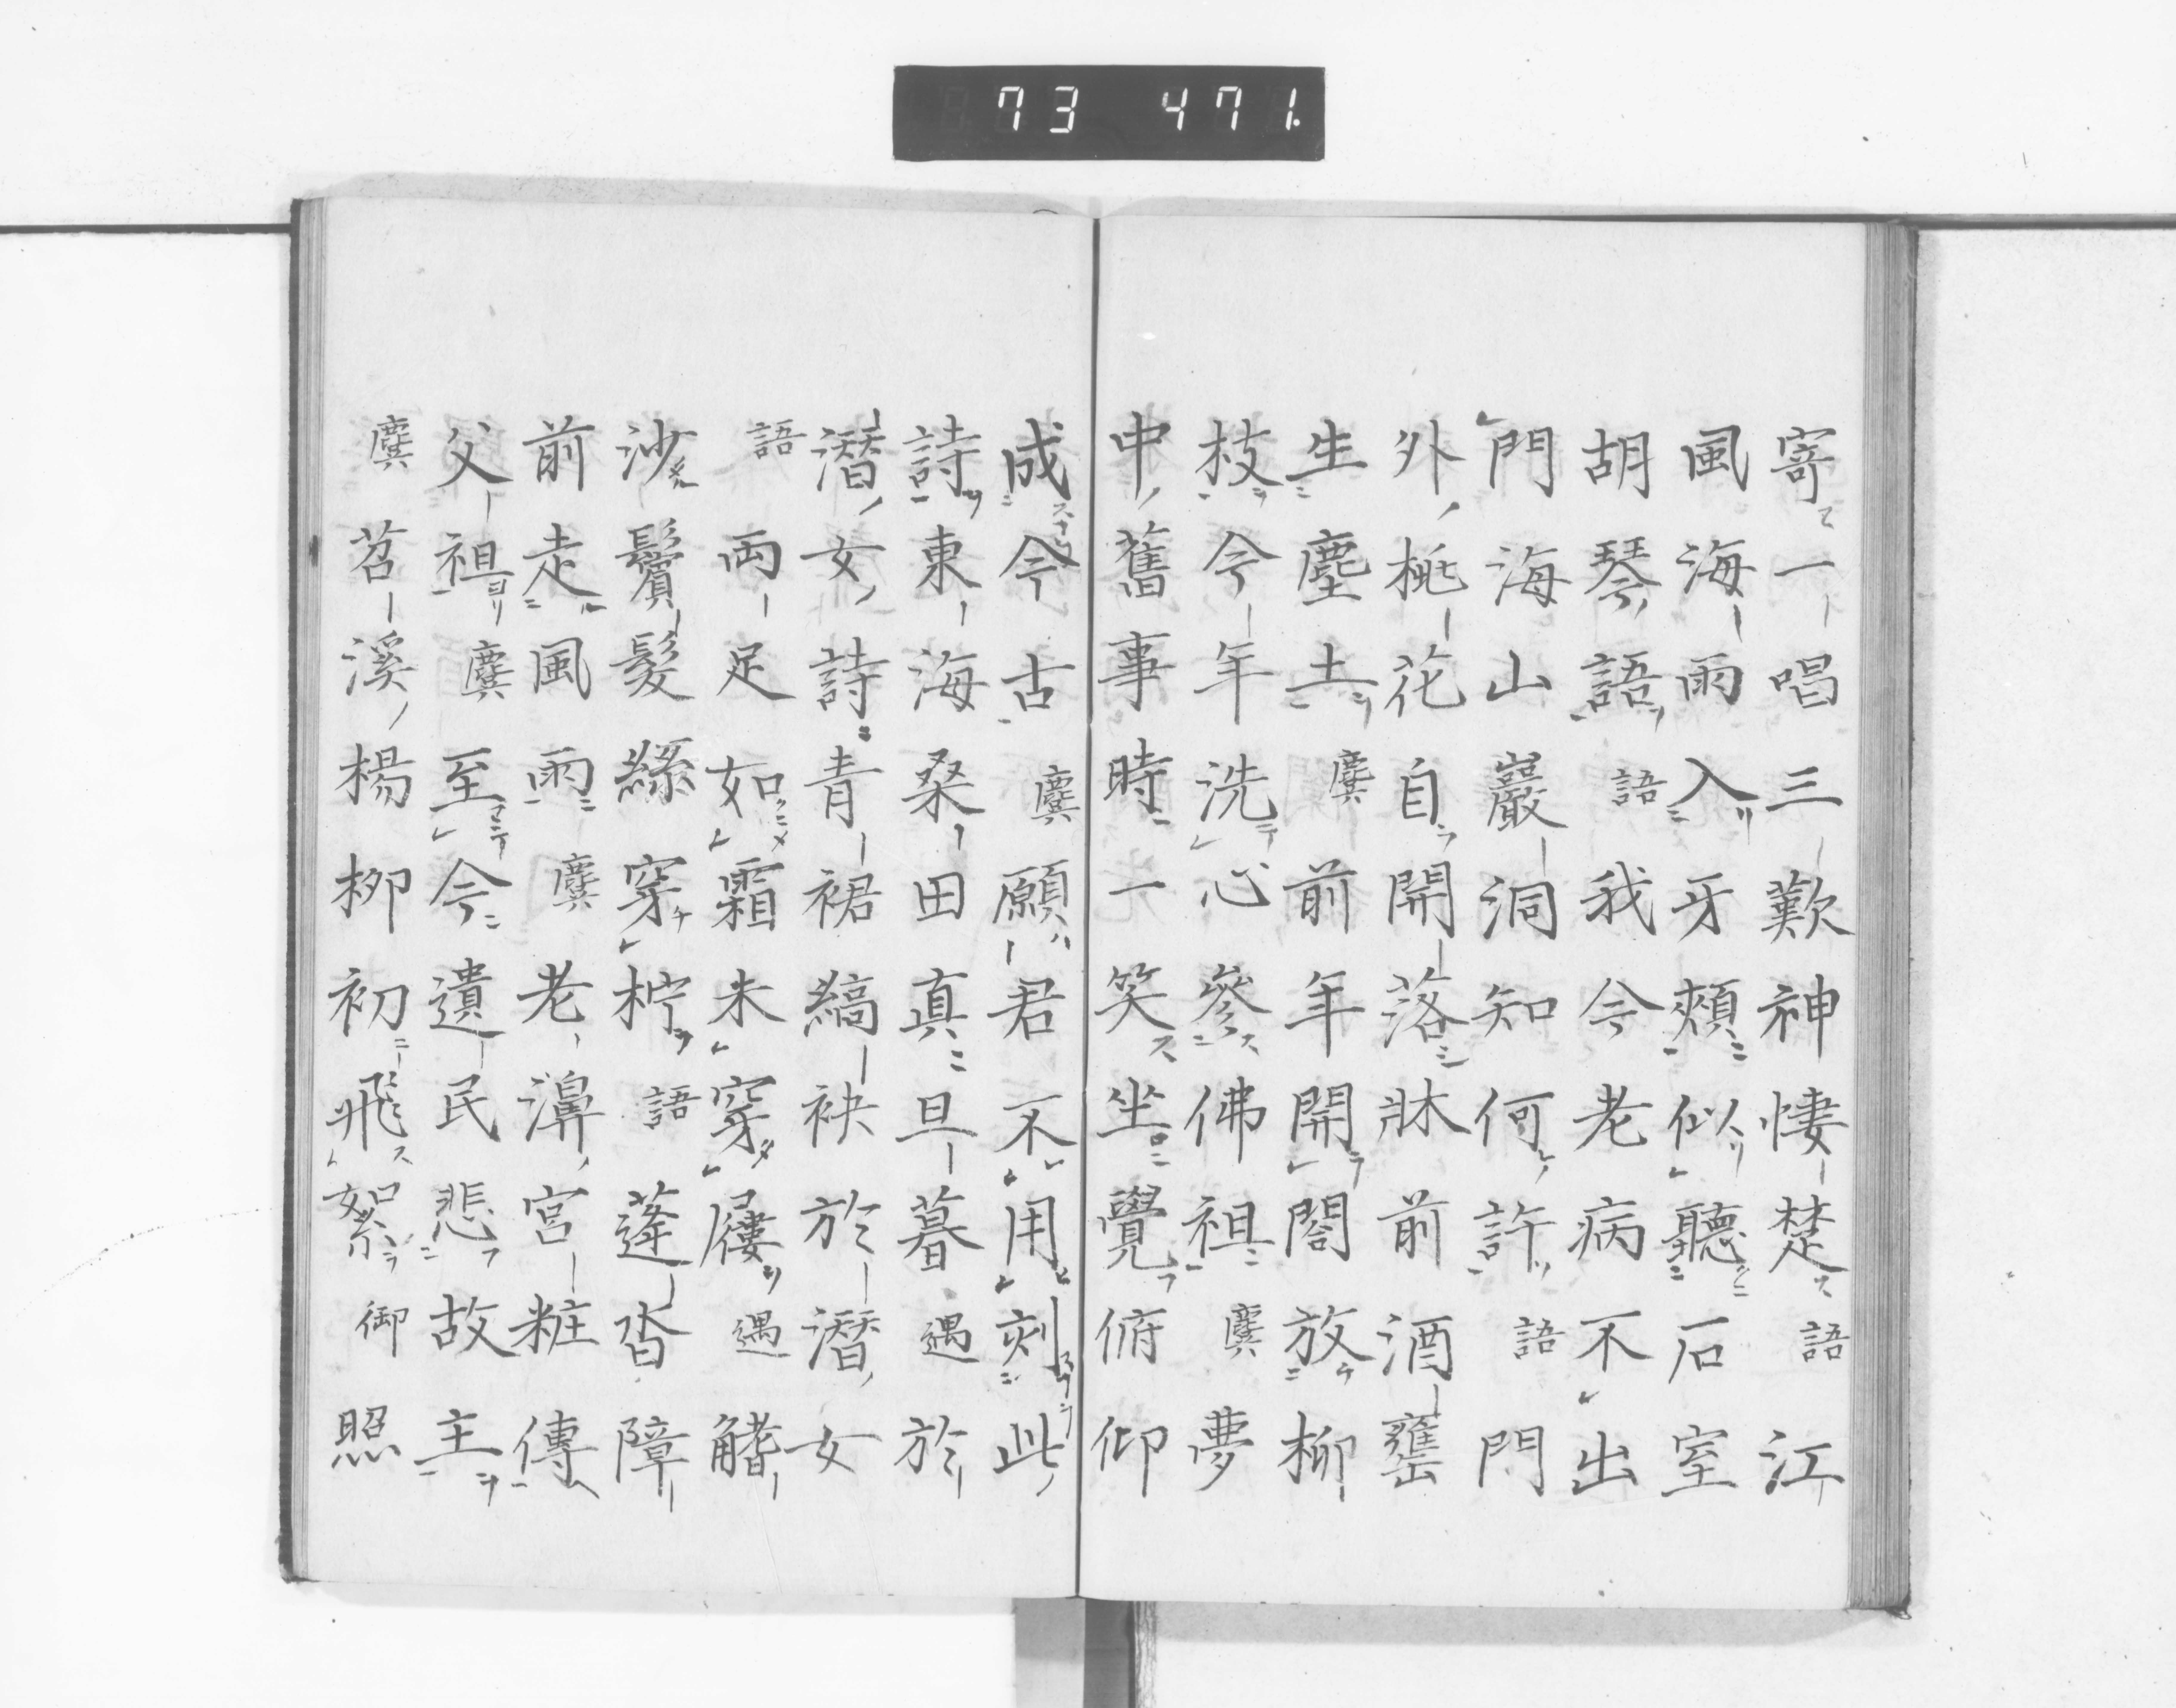 73 471.
寄一唱三歎神悽楚語江
風海雨入牙頰似聽石室
胡琴語語我今老病不出
門海山巖洞知何許語門
外桃花自開落牀前酒甕
生塵土麌前年開閤放柳
枝今年洗心參佛祖麌夢
中舊事時一笑坐覺俯仰
成今古麌願君不用刻此
詩東海桑田真旦暮遇於
潛女詩青裙縞袂於潛女
語両足如霜未穿屨遇觰
沙鬢髮絲穿柠語蓬沓障
前走風雨麌老濞宮粧傳
父祖麌至今遺民悲故主
麌苕溪楊柳初飛絮御照